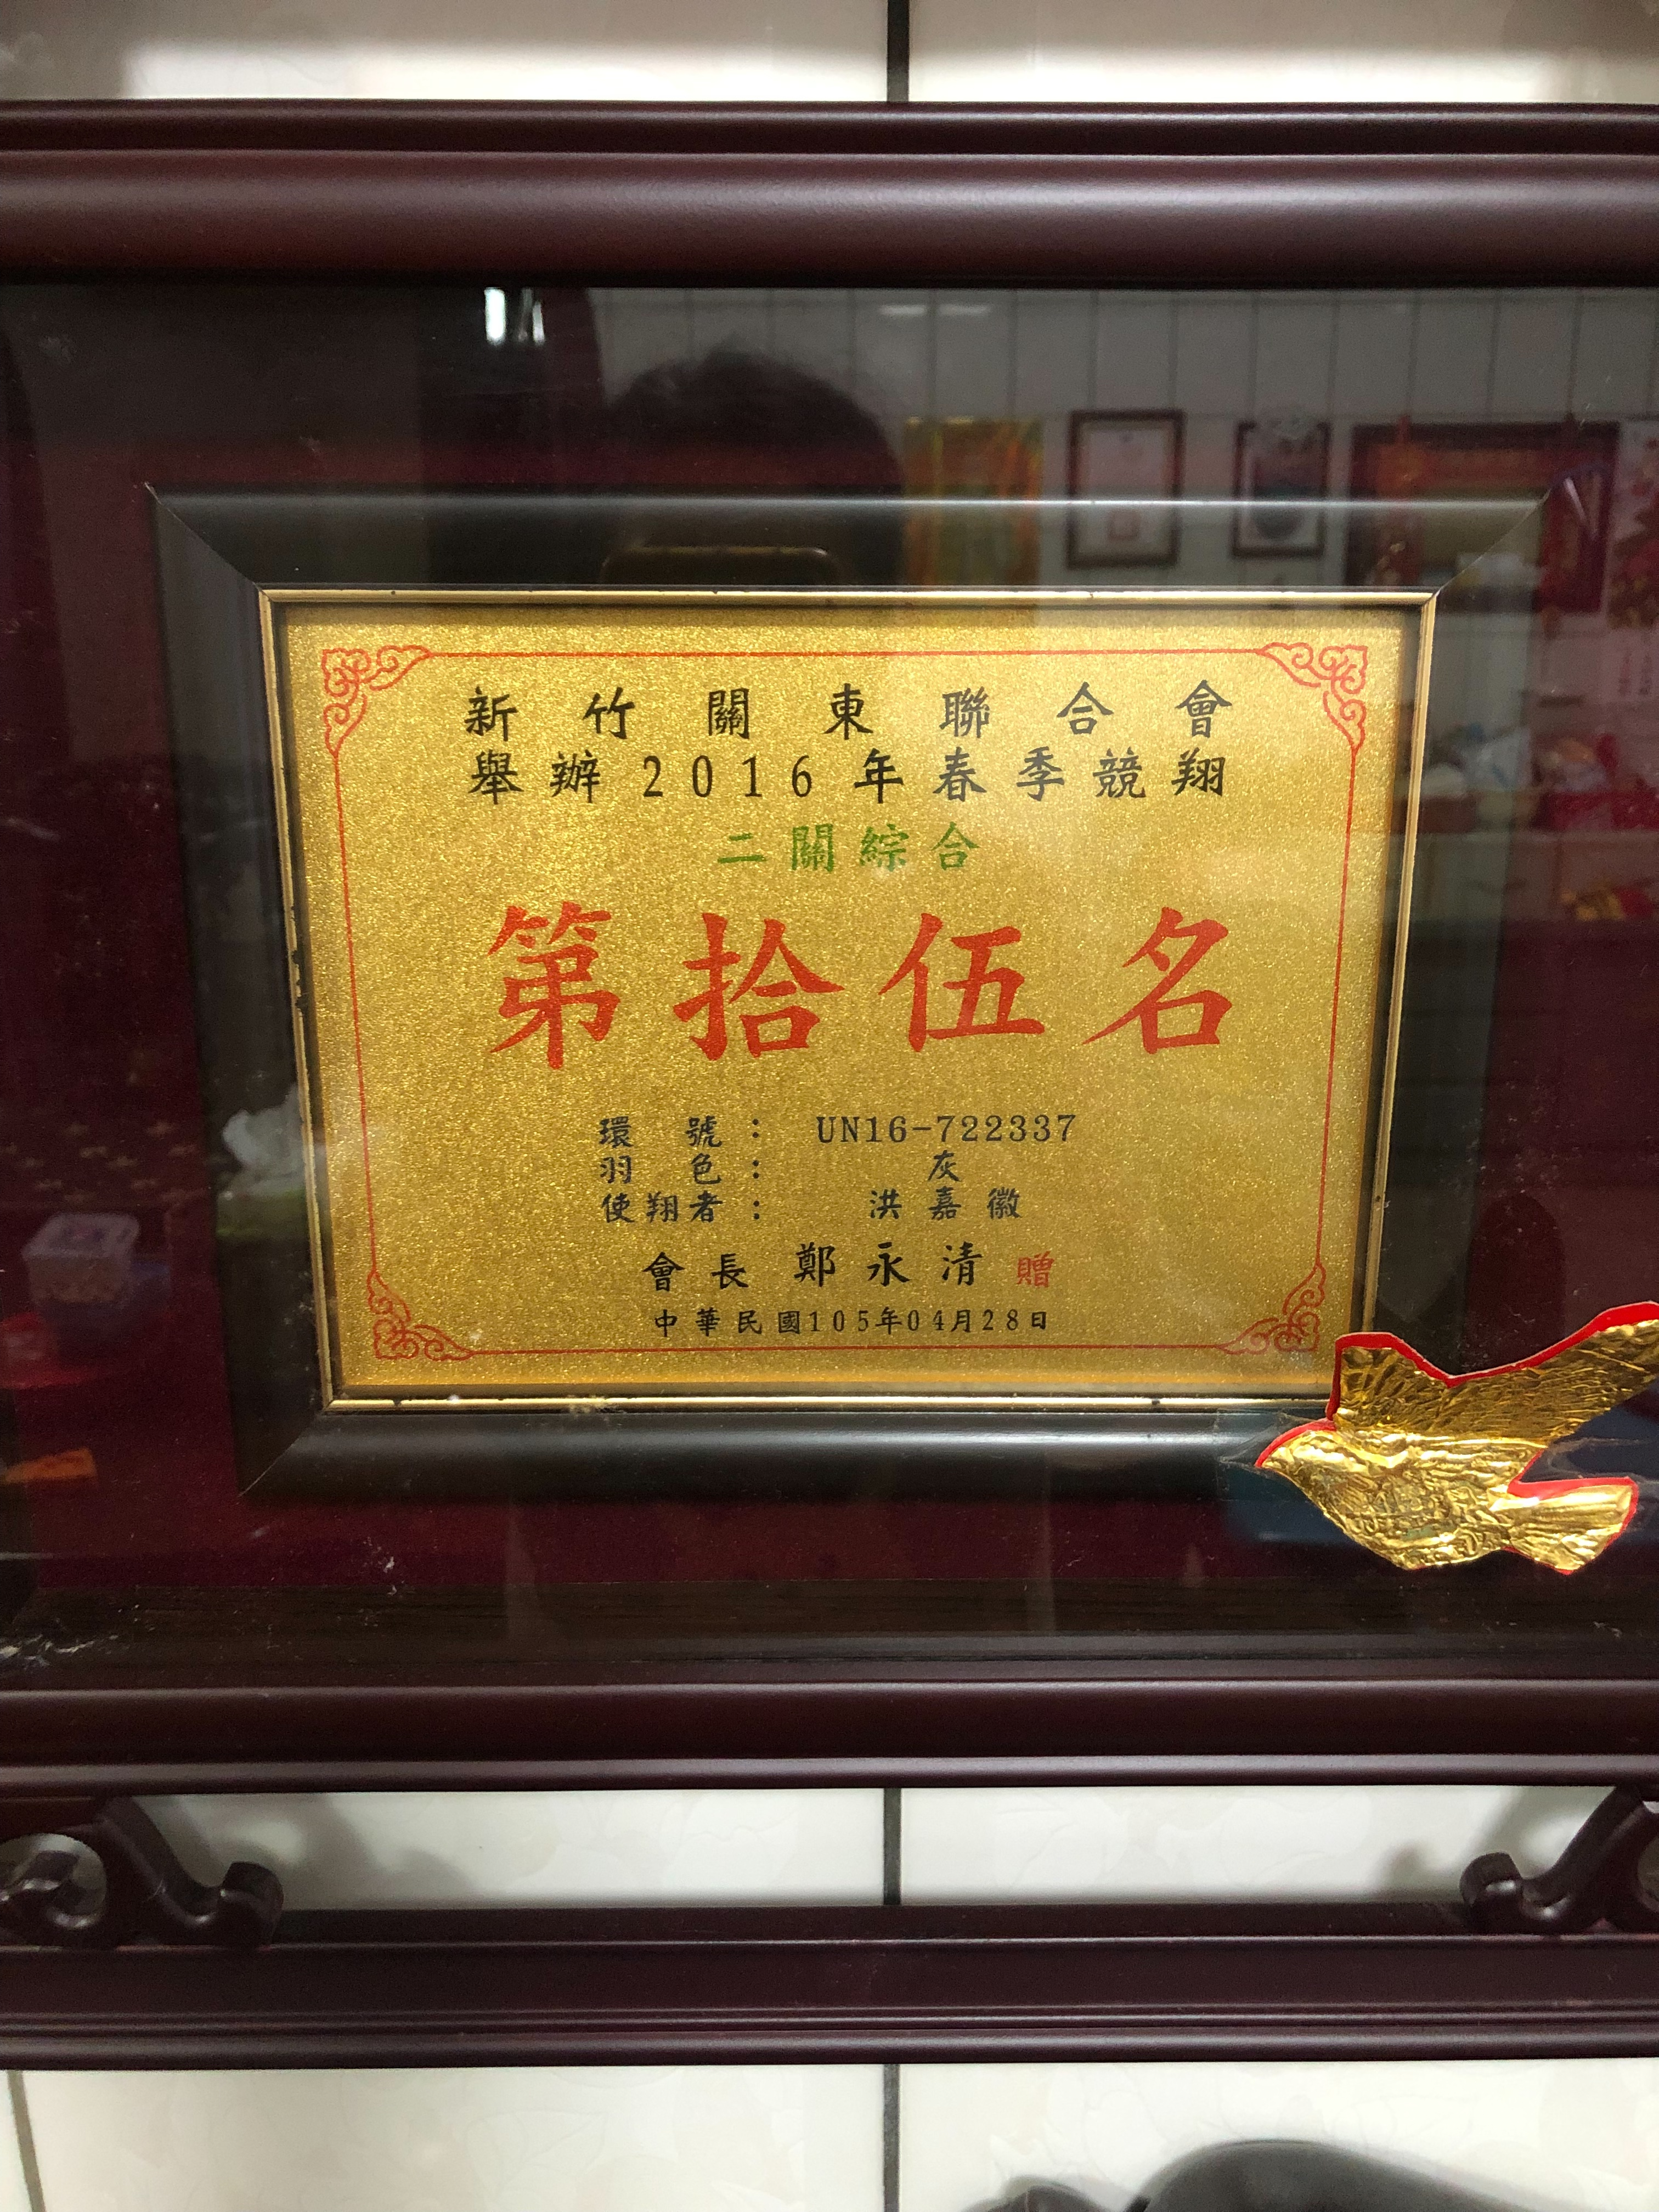 新竹關東聯合會
舉辦2016年春季競翔
二關綜合
第拾伍名
環號：UN16-722337
羽色：灰
使翔者：洪嘉徽
會長 鄭永清 贈
中華民國105年04月28日